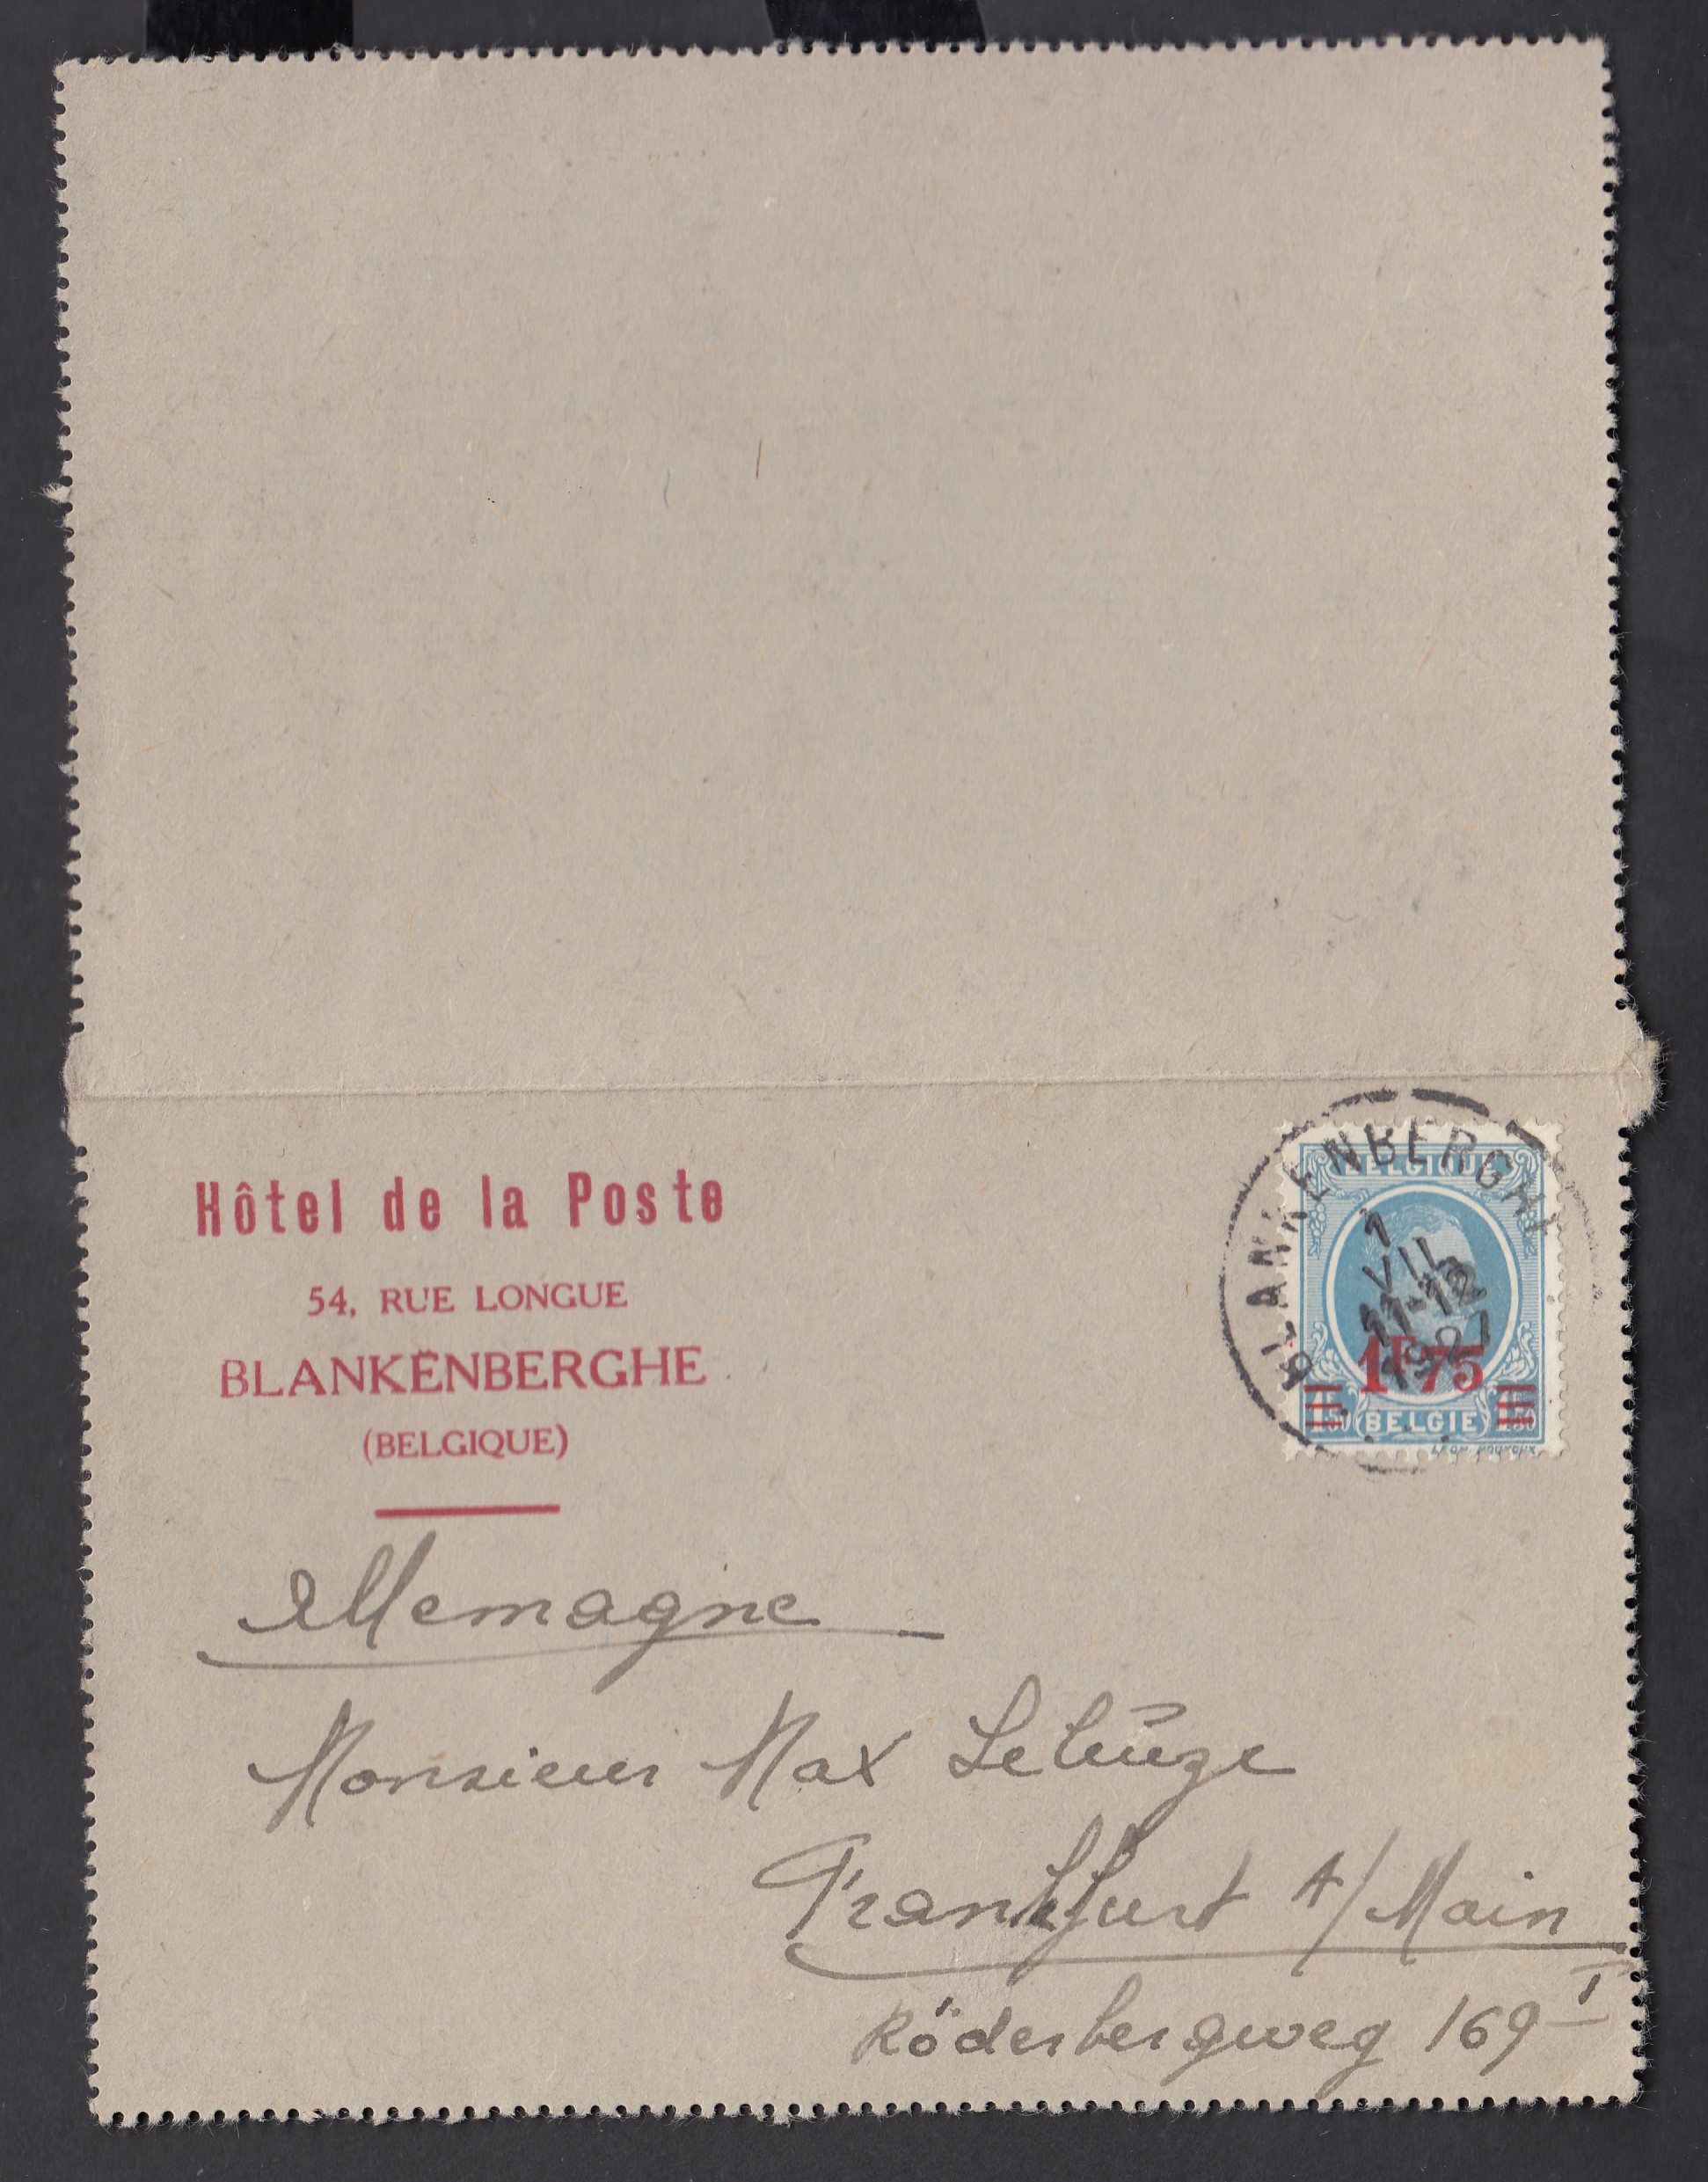 Hôtel de la Poste
54, RUE LONGUE
BLANKENBERGHE
(BELGIQUE)
BLANKENBERGHE
1
VII
11-12
1927
BELGIQUE
1F75
1F50 BELGIE 1F50
Allemagne
Monsieur Max
Frankfurt A/Main
Röderbergweg 169 I